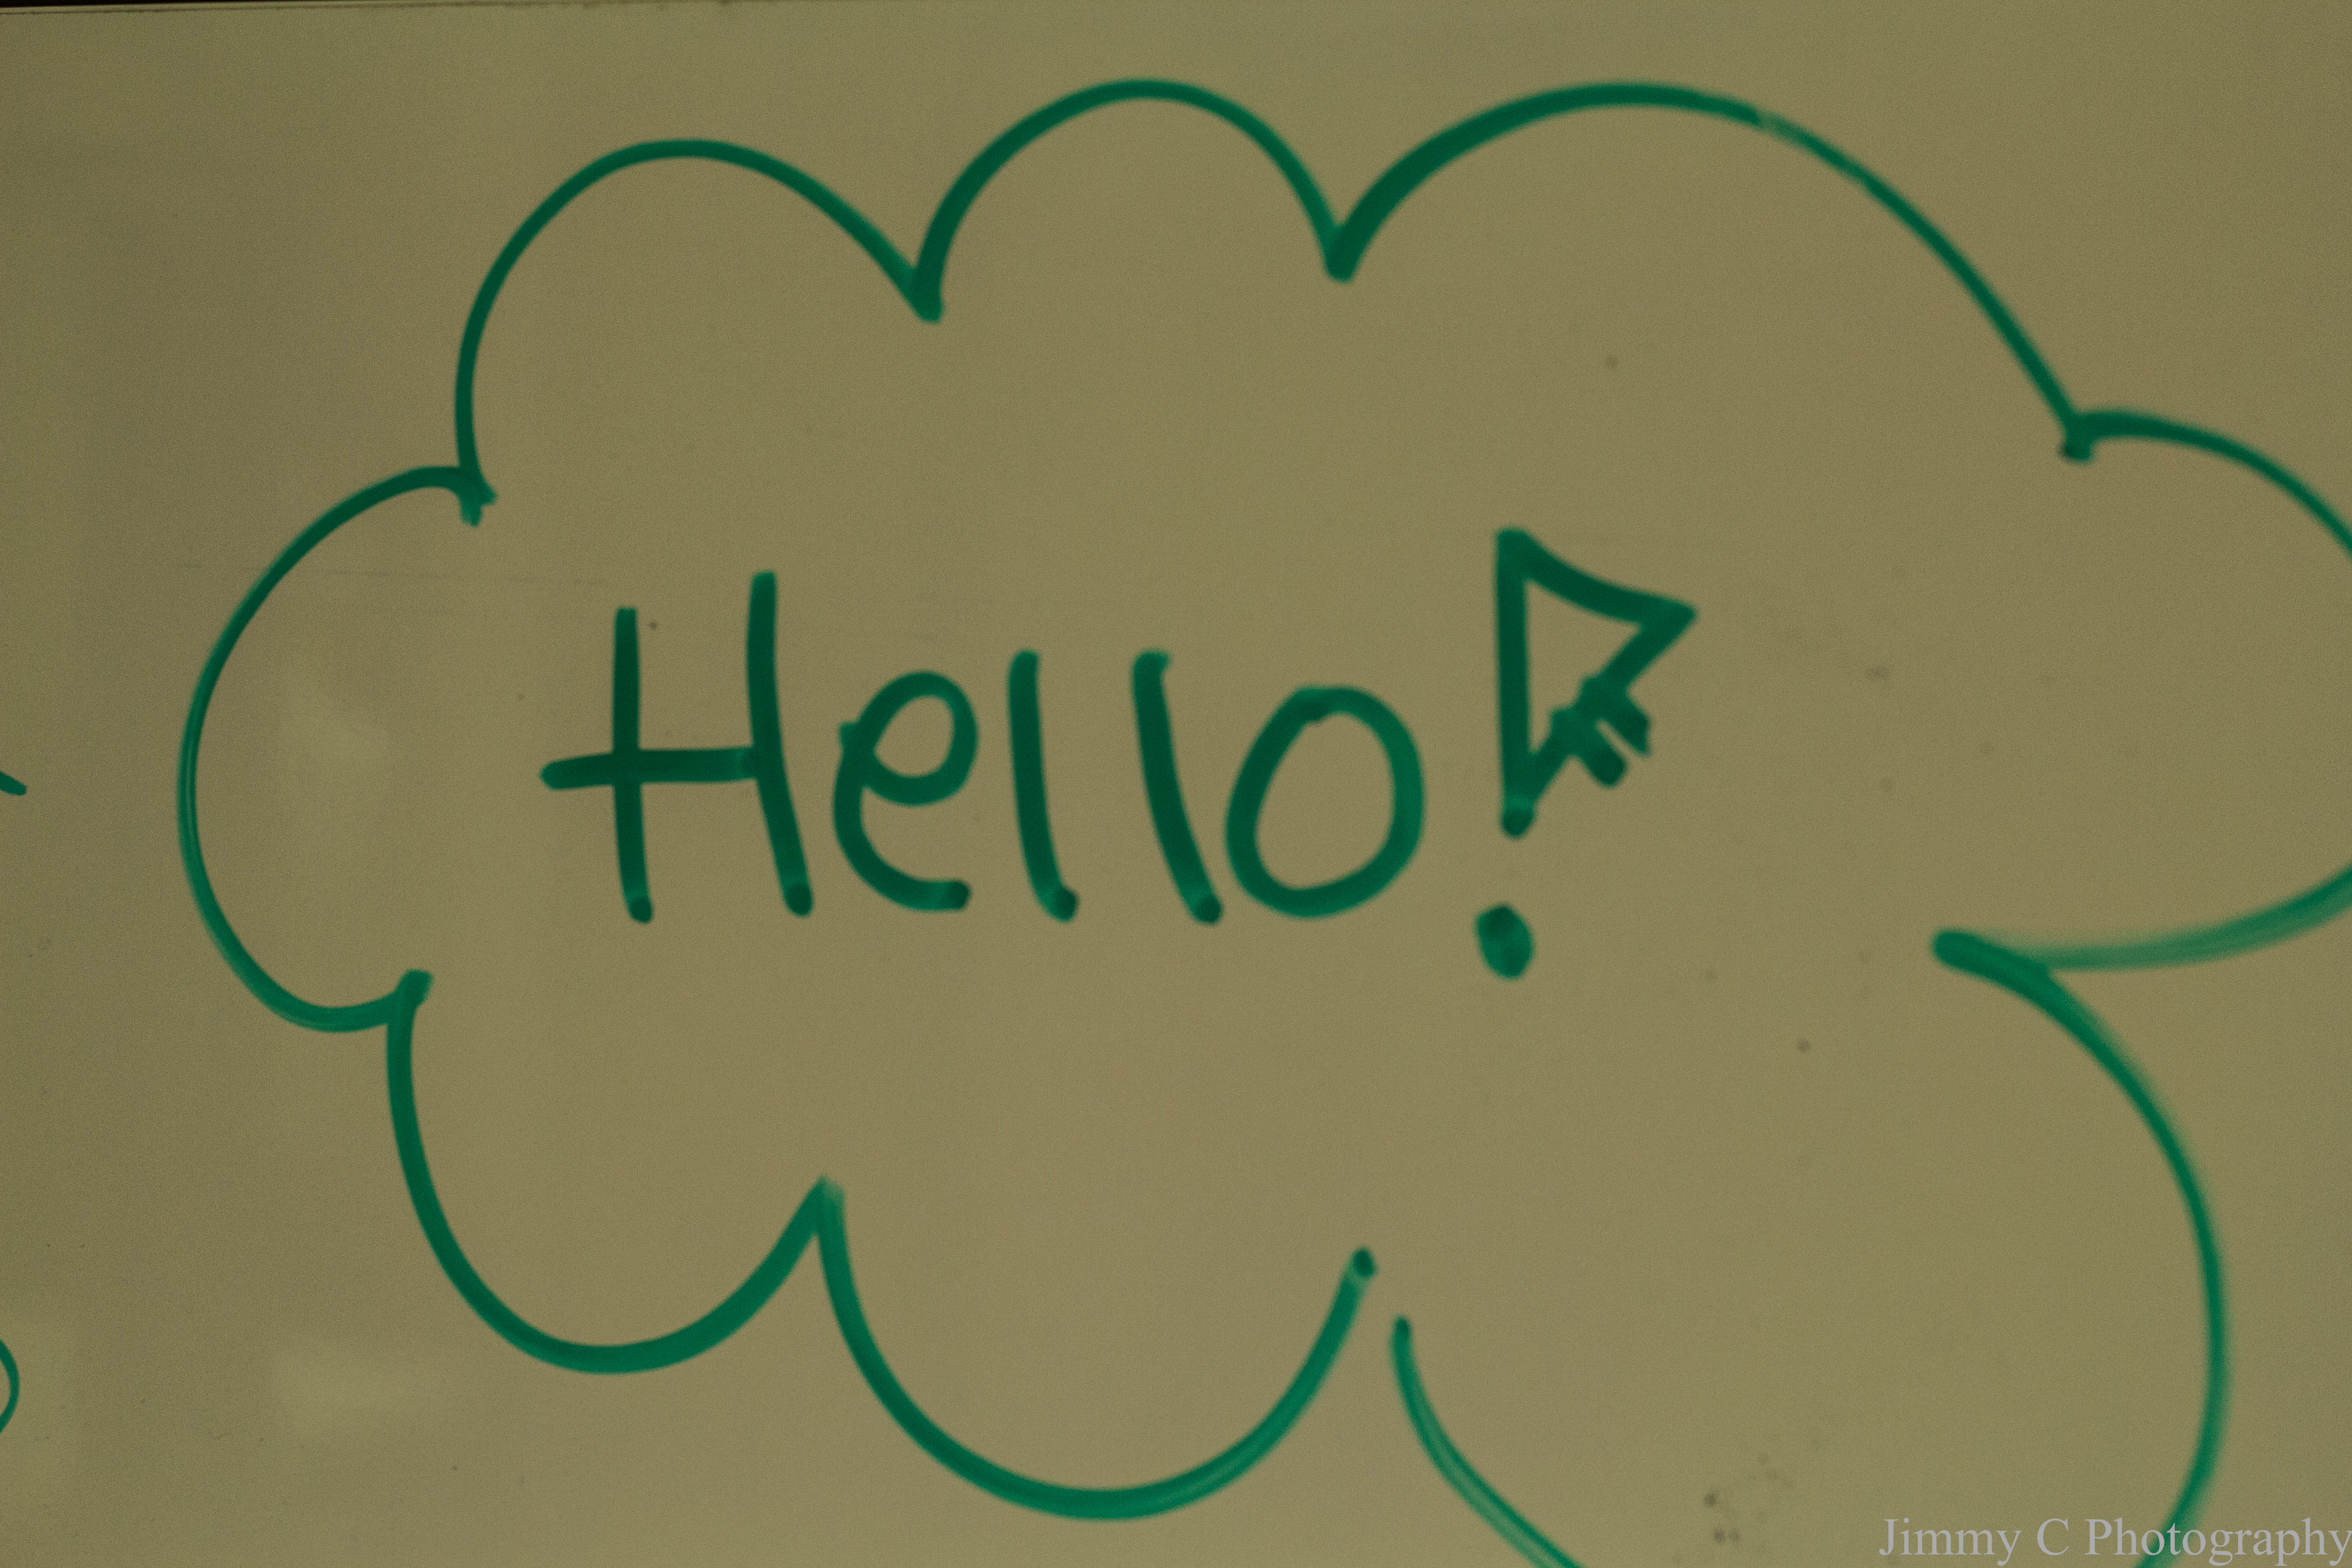 Hello!
Jimmy C Photography